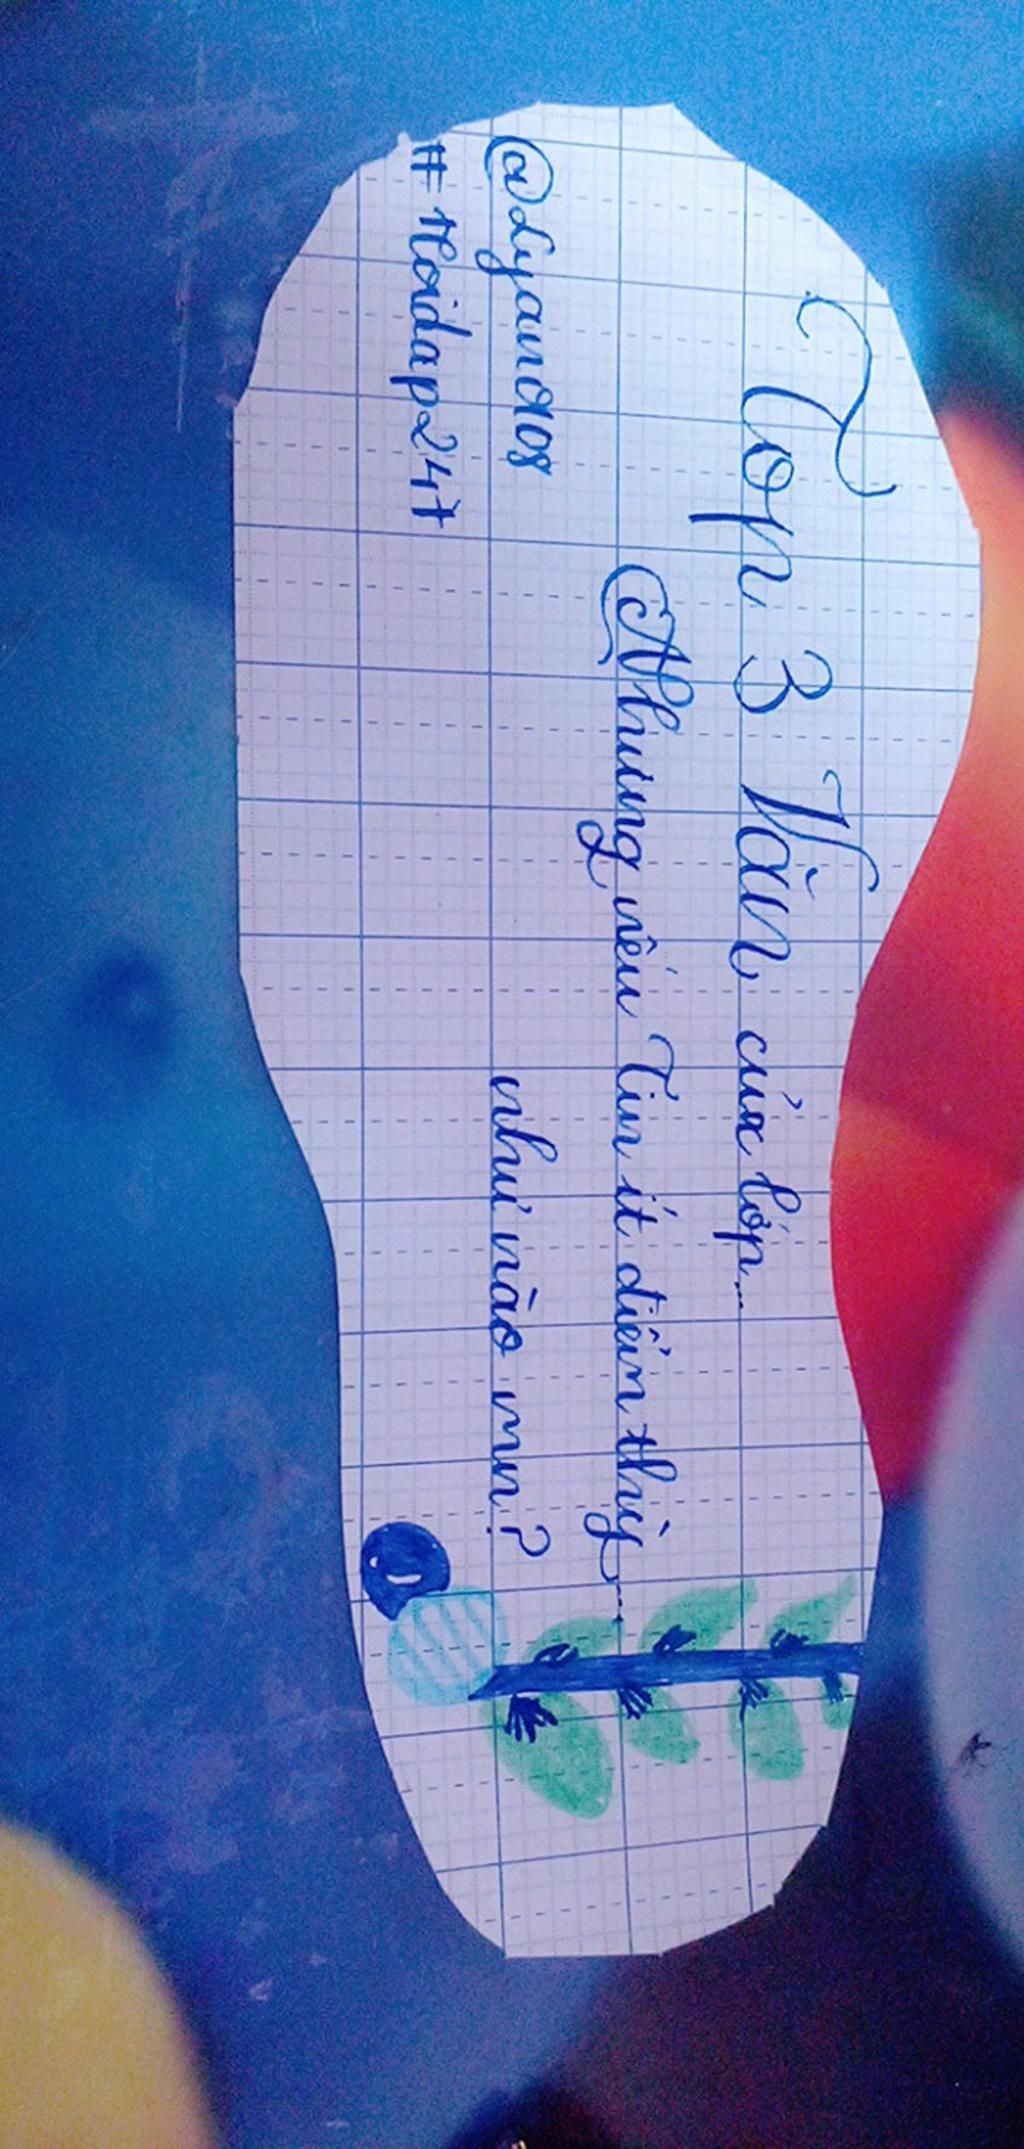 Top 3 Văn của lớp...
Nhưng nếu Tin ít điểm thì....
như nào mn?
@Lyana108
#Hoidap247